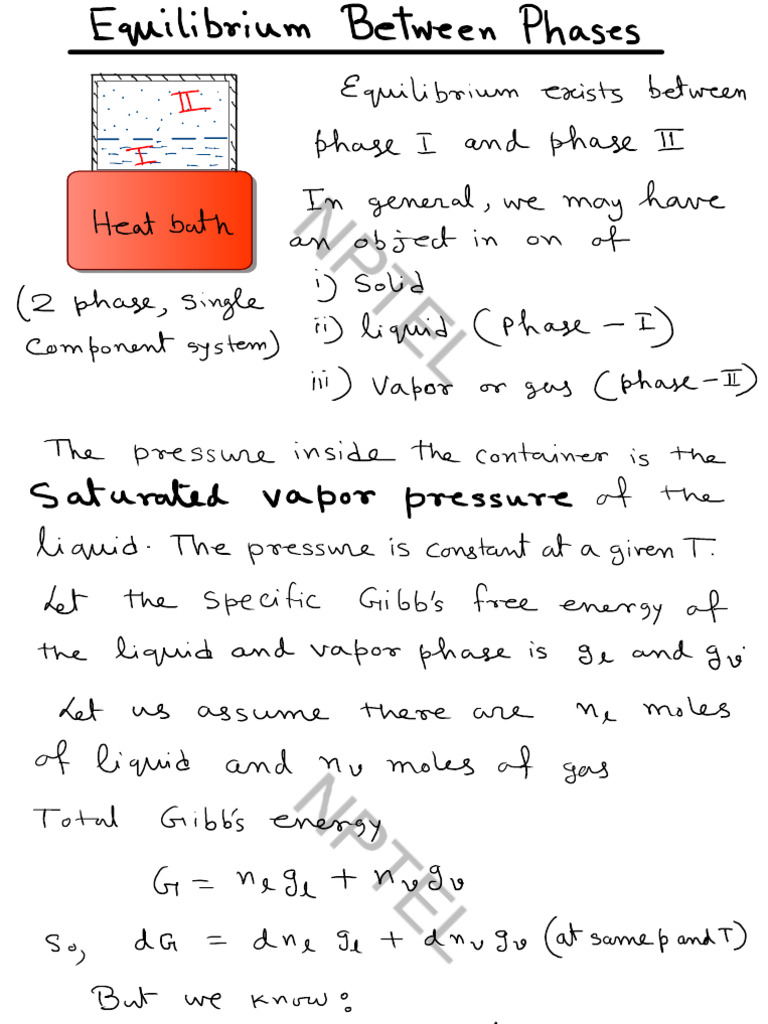 Equilibrium Between Phases
II
I
Heat bath
(2 phase, single
component system)
Equilibrium exists between
phase I and phase II
In general, we may have
an object in on of
i) Solid
ii) liquid (Phase - I)
iii) Vapor or gas (phase-II)
The pressure inside the container is the
Saturated vapor pressure of the
liquid. The pressure is constant at a given T.
Let the specific Gibb's free energy of
the liquid and vapor phase is gₗ and gᵥ.
Let us assume there are nₗ moles
of liquid and nᵥ moles of gas
Total Gibb's energy
G = nₗgₗ + nᵥgᵥ
So, dG = dnₗ gₗ + dnᵥgᵥ (at same p and T)
But we know:
NPTEL
NPTEL